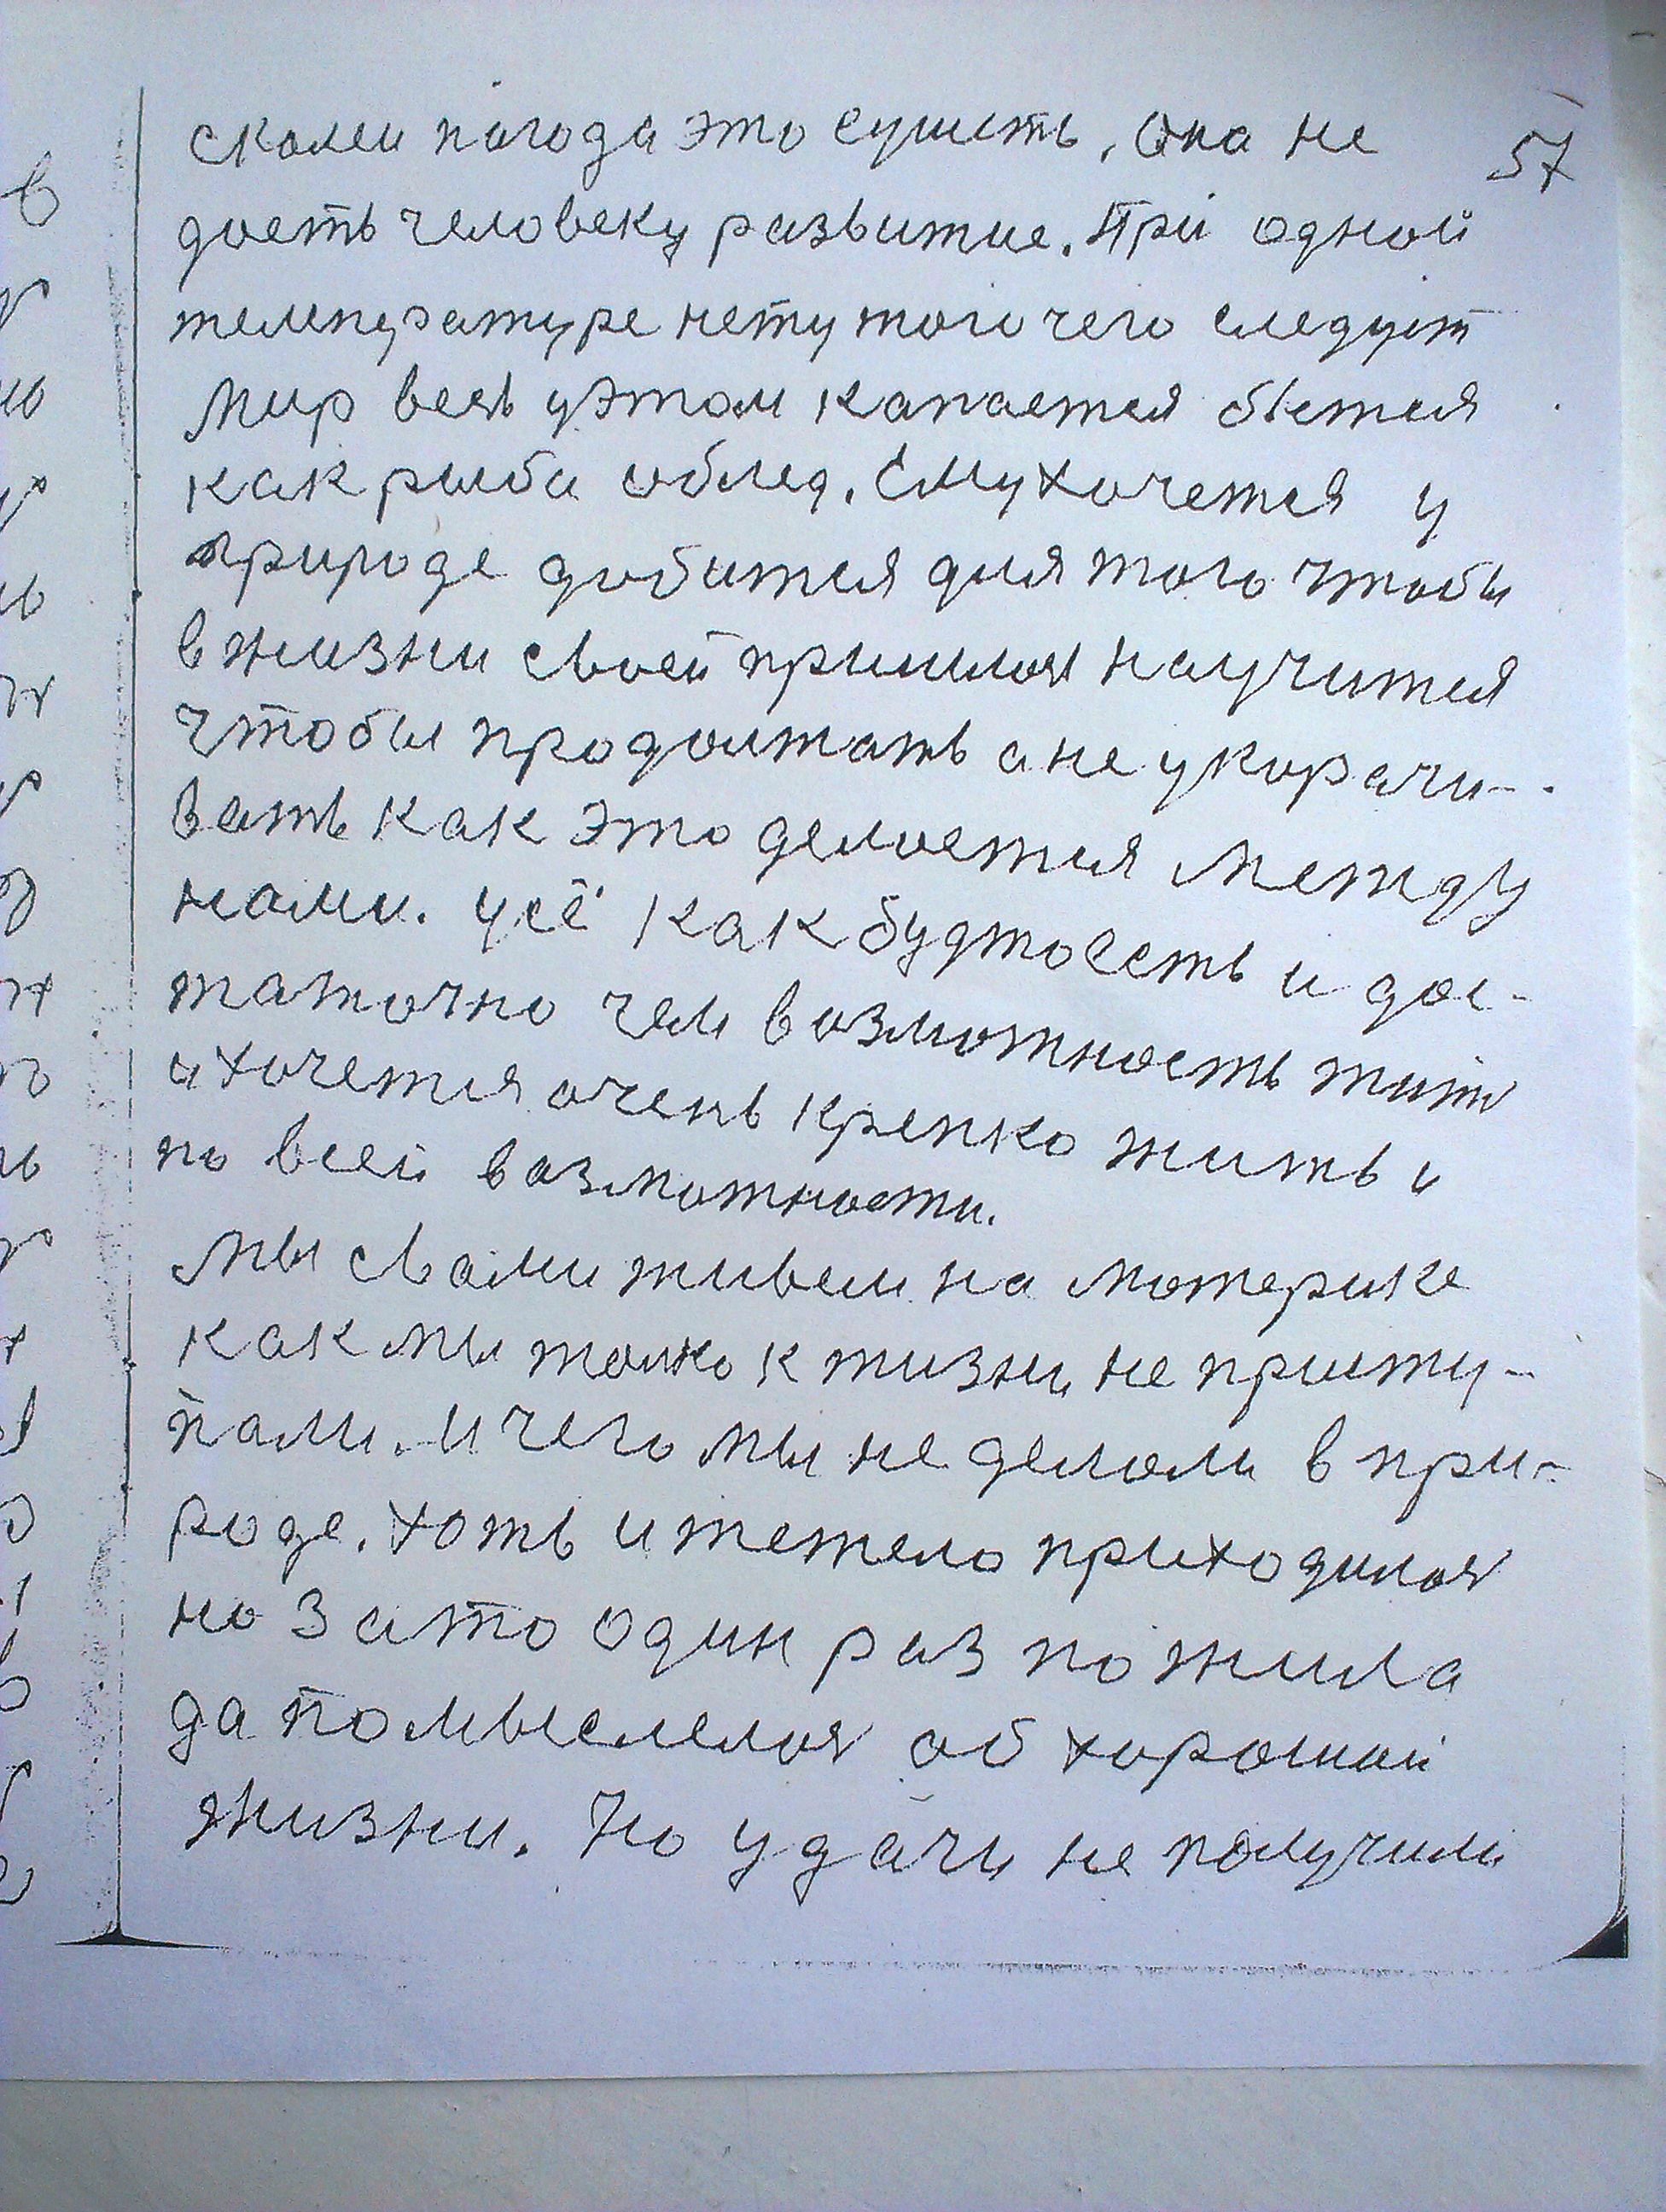 скоми погода это сушить, Она не 57
доеть человеку развитие. При одной
темпуратуре нету того чего следует
Мир весь уэтом капается бьется
как рыба облед. Ему хочется у
природе добится для того чтобы
в жизни своей пришлося научится
чтобы продолжать а не укорачи-
вать как это делоется Между
нами. усё как будто есть и дос-
таточно чем возможность жить
и хочется очень крепко жить и
по всей возможности.
Мы свами живем на Материке
как мы только к жизни не присту-
пали. И чего мы не делоли в при-
роде. хоть и тежело приходилося
но зато один раз пожила
да помыслелося об хорошой
жизни. Но удачи не получили